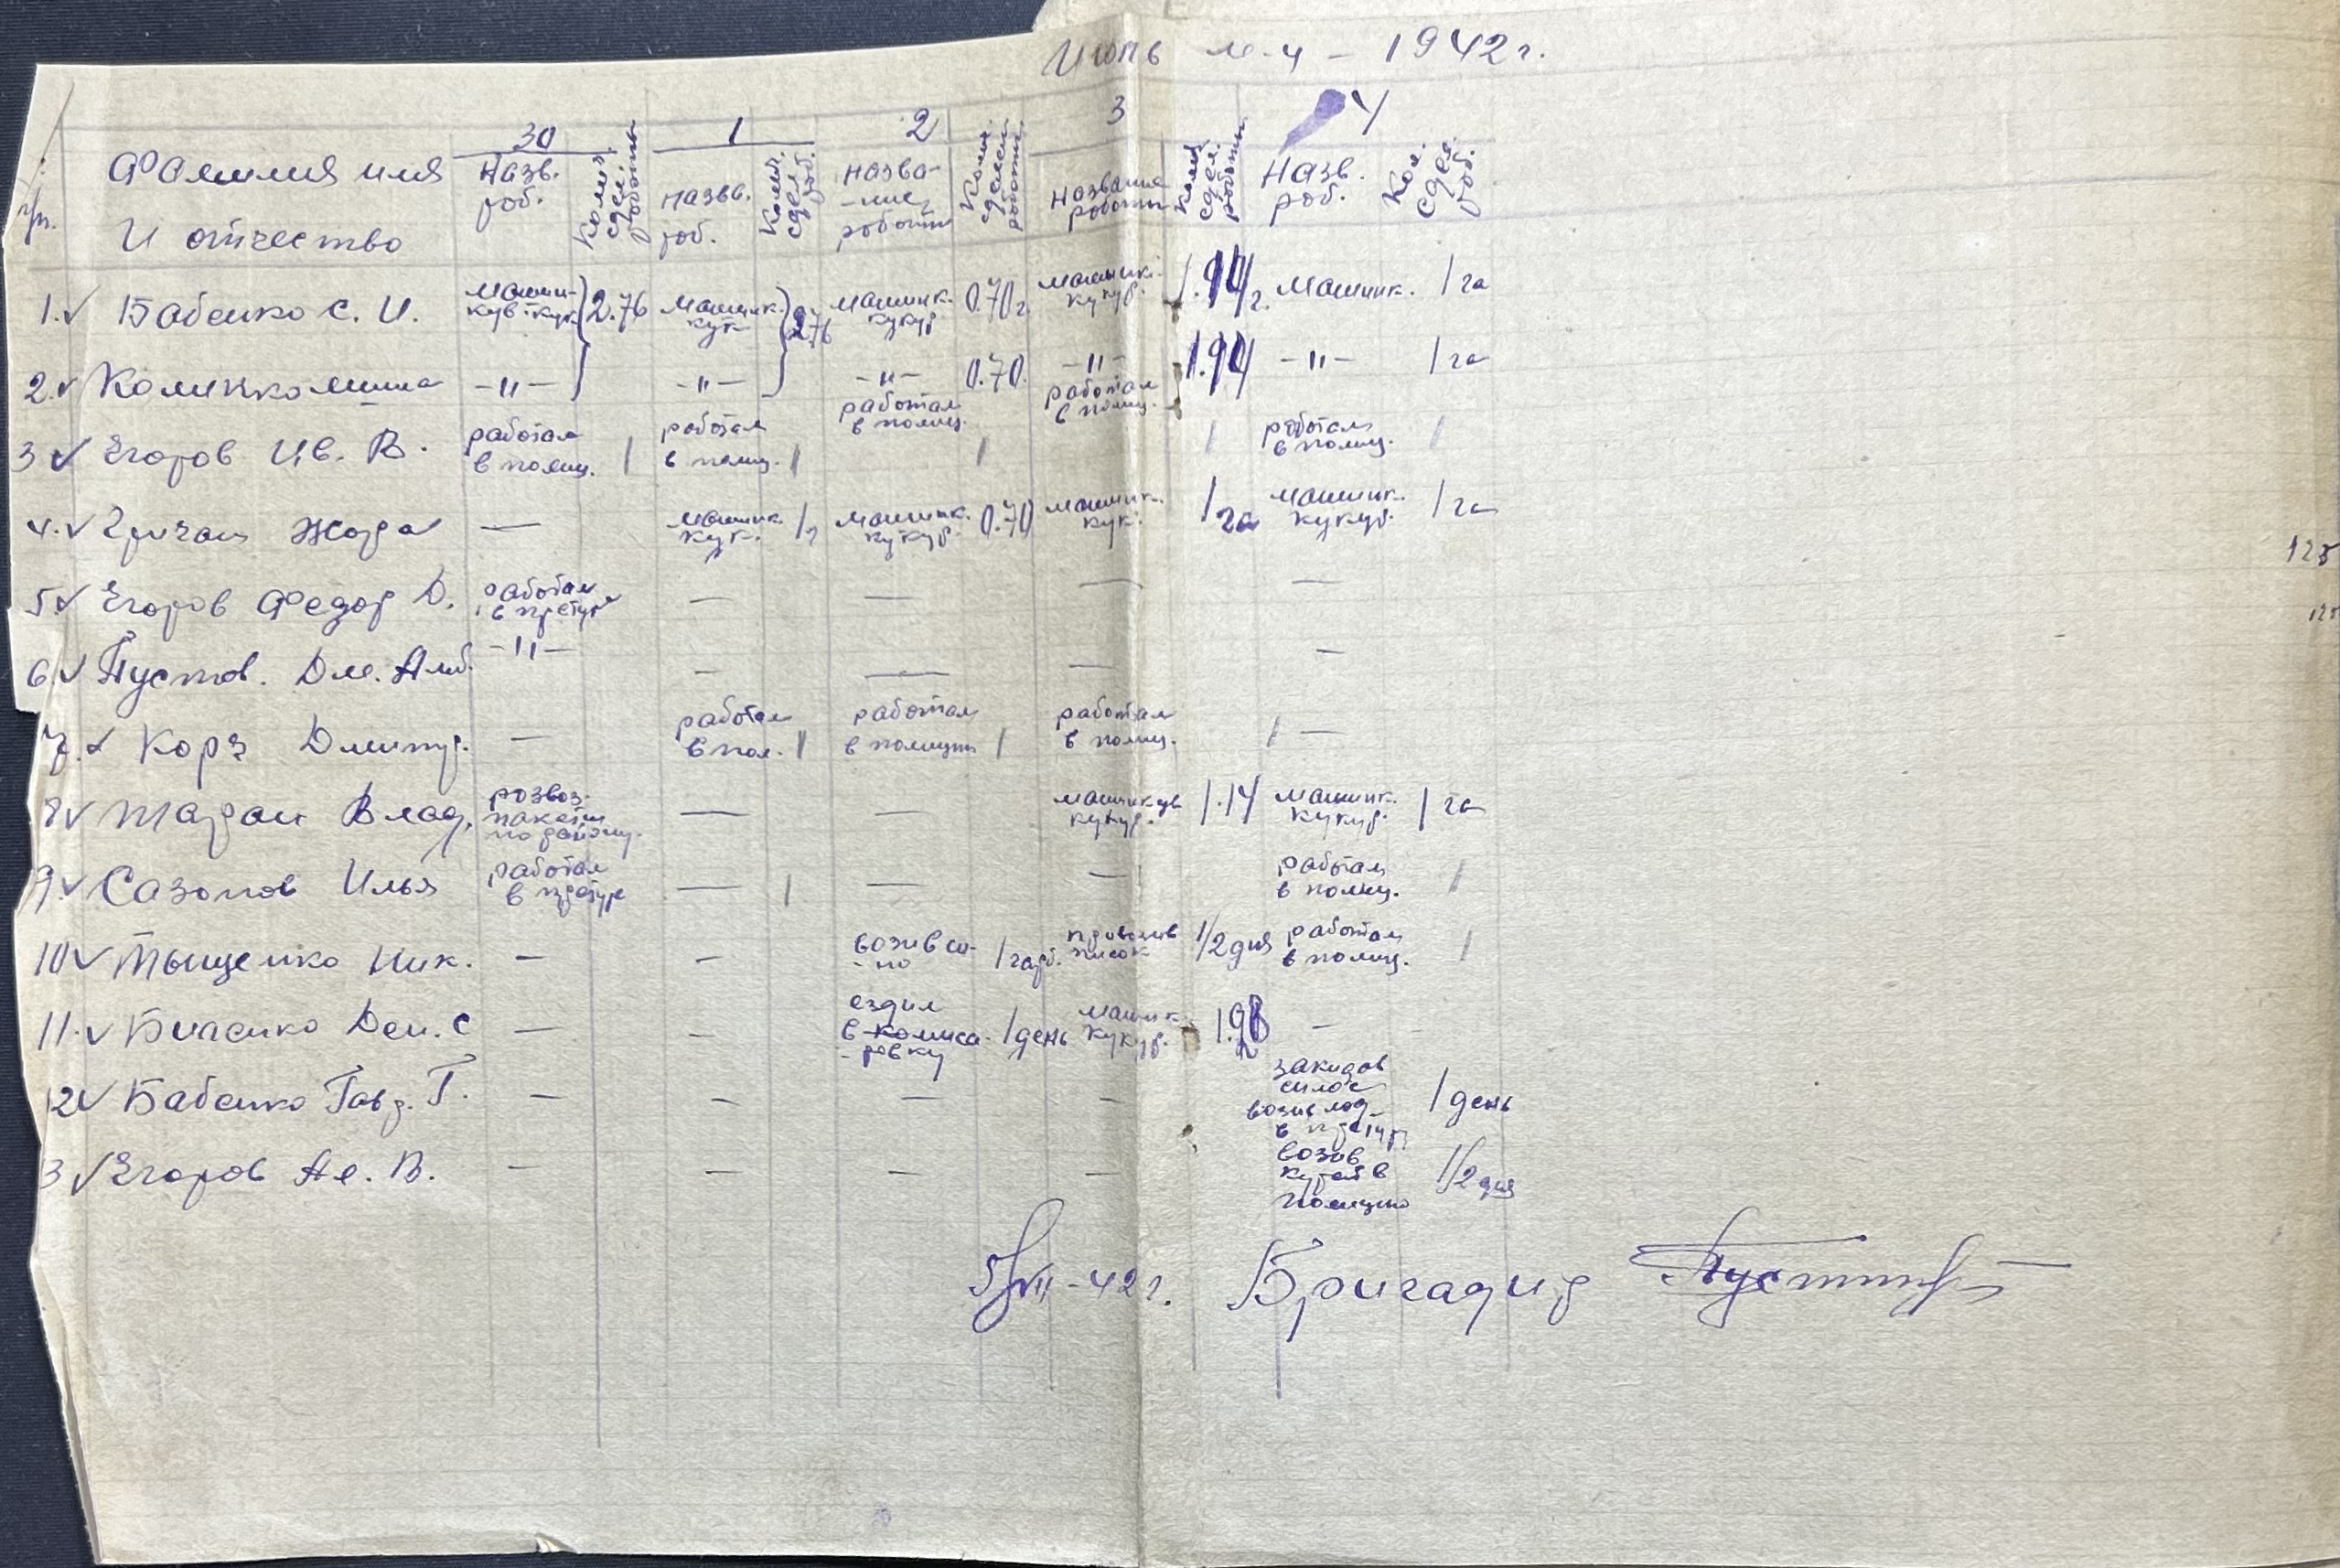 Июль м-ц - 1942 г.
30 1 2 3 4
Фамилия имя
И отчество
Назв. роб. Колич. сдел. роботы
Назв. роб. Колич. сдел. роб.
Назва-ние роботи Колич. сделан. роботи
Название роботи Колич сдел. роботи
Назв. роб. Кол. сдел. роб.
1. Бабенко С. И. машин-кув. кук 2.76 машинк. кук 2.76 машинк. кукур 0.70 г. машинк. кукур. 1.94 г. машинк. 1 га
2. -"- -"- -"- 0.70. -"- 1.94 -"- 1 га
3 Егоров Ив. В. работал в полиц. 1 работал в полиц. 1 работал в полиц. 1 работал в полиц. 1 работал в полиц. 1
4. Жора — машинк. кук. 1 г машинк. кукур. 0.70 машинк. кук. 1 га машинк. кукур. 1 га
5 Егоров Федор D. работал в претур — — — —
6 Пустов. Дм. -"- — — — —
7. Корз Дмитр. — работал в пол. 1 работал в полиции 1 работал в полиц. 1 —
8 Таран Влад. розвоз. пакеты по району. — — машинкув кукур. 1.14 машинк. кукур. 1 га
9. Сазонов Илья работал в претуре — 1 — — работал в полиц. 1
10 Тыщенко Ник. — — возив сі-но 1 гарб. писок 1/2 дня работал в полиц. 1
11. Ден. С — — ездил в комиса-ровку 1 день машинк. кукур. 1.98 —
12 Бабенко Гавр. Г. — — — — закидов силос возив вод. в претур 1 день
13 Егоров Ал. В. — — — — возив курай в полицию 1/2 дня
5/VII-42 г. Бригадир
125
125